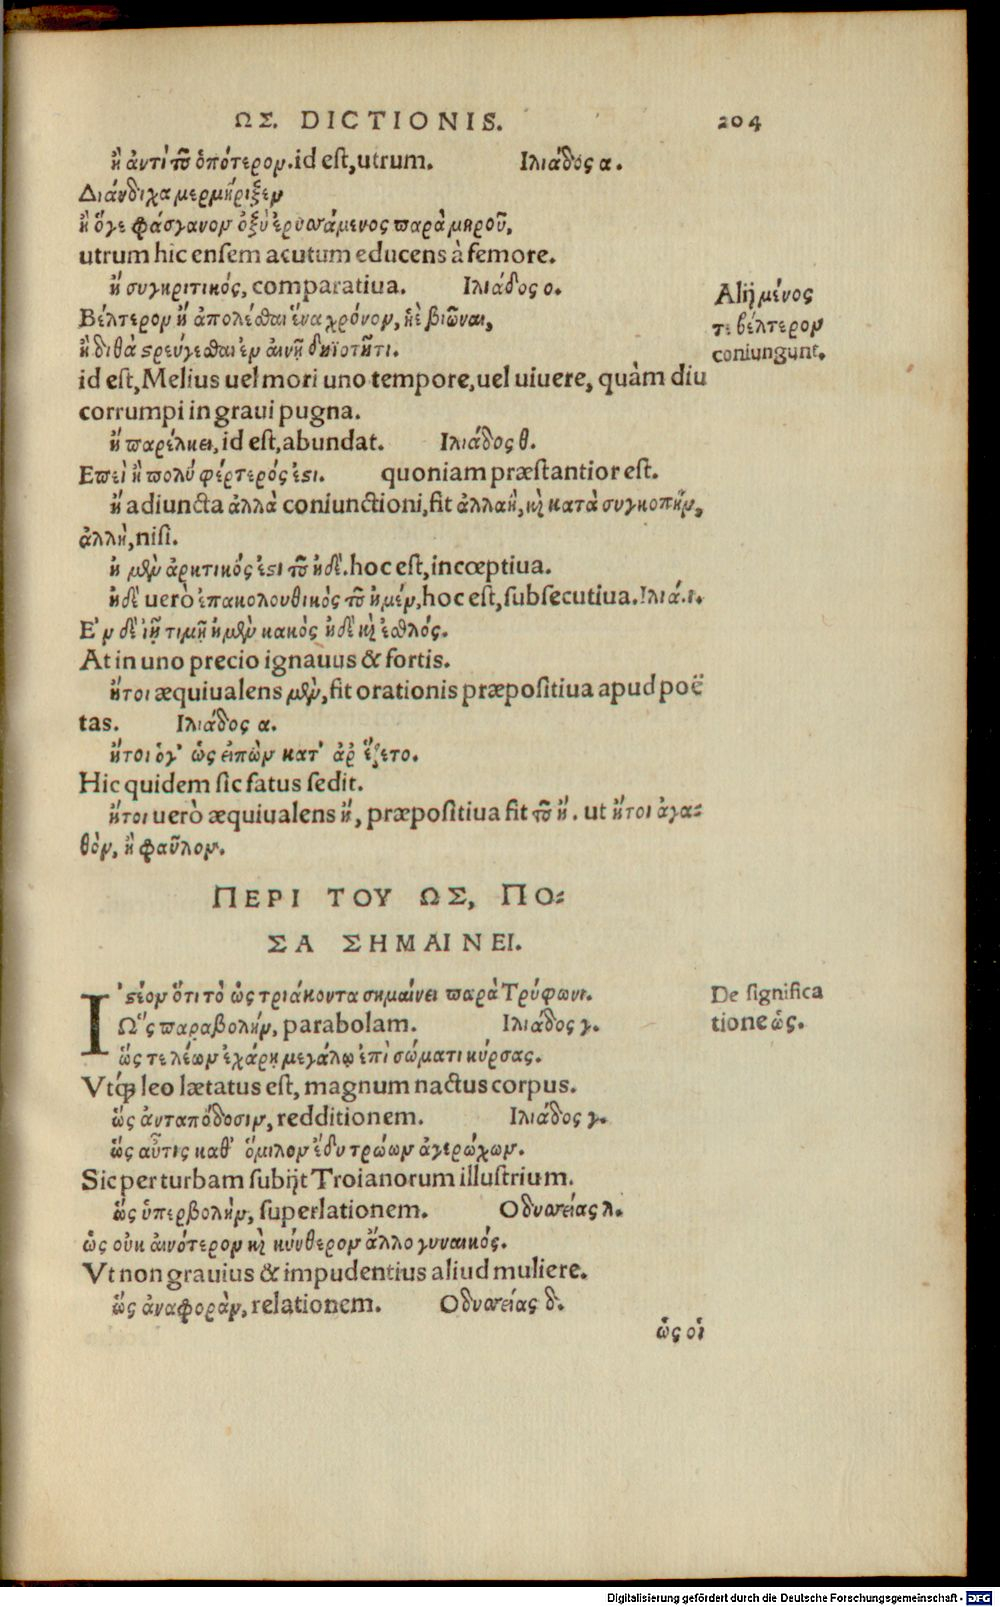 ΩΣ. DICTIONIS. 204
ἢ ἀντὶ τοῦ ὁπότερον. id est, utrum. Ιλιάδος α.
Διάνδιχα μερμήριξεν
ἢ ὅγε φάσγανον ὀξὺ ἐρυσσάμενος παρὰ μηροῦ,
utrum hic ensem acutum educens à femore.
ἢ συγκριτικός, comparatiua. Ιλιάδος ο.
Βέλτερον ἢ ἀπολέσθαι ἕνα χρόνον, ἠὲ βιῶναι,
ἢ δηθὰ στρεύγεσθαι ἐν αἰνῇ δηϊοτῆτι.
id est, Melius uel mori uno tempore, uel uiuere, quàm diu
corrumpi in graui pugna.
Alij μένος
τε βέλτερον
coniungunt.
ἢ παρέλκει, id est, abundat. Ιλιάδος θ.
Επεὶ ἢ πολὺ φέρτερός ἐστι. quoniam præstantior est.
ἢ adiuncta ἀλλὰ coniunctioni, fit ἀλλαὴ, καὶ κατὰ συγκοπὴν,
ἀλλὴ, nisi.
ἠ μὲν ἀρκτικός ἐστι τοῦ ἠδὲ. hoc est, incœptiua.
ἠδὲ uerò ἐπακολουθικὸς τοῦ ἠμέν, hoc est, subsecutiua. Ιλιά. ι.
Ε᾽ν δὲ ἰῇ τιμῇ ἠμὲν κακὸς ἠδὲ καὶ ἐσθλός.
At in uno precio ignauus & fortis.
ἤτοι æquiualens μὲν, fit orationis præpositiua apud poë
tas. Ιλιάδος α.
ἤτοι ὁγ᾽ ὡς εἰπὼν κατ᾽ ἀρ ἕζετο.
Hic quidem sic fatus sedit.
ἤτοι uerò æquiualens ἢ, præpositiua fit τοῦ ἢ. ut ἤτοι ἀγα-
θὸν, ἢ φαῦλον.
ΠΕΡΙ ΤΟΥ ΩΣ, ΠΟ-
ΣΑ ΣΗΜΑΙΝΕΙ.
Ι᾽στέον ὅτι τὸ ὡς τριάκοντα σημαίνει παρὰ Τρύφωνι.
Ὥς παραβολήν, parabolam. Ιλιάδος γ.
De significa
tione ὡς.
ὥς τε λέων ἐχάρη μεγάλῳ ἐπὶ σώματι κύρσας.
Vtq́ue leo lætatus est, magnum nactus corpus.
ὥς ἀνταπόδοσιν, redditionem. Ιλιάδος γ.
ὥς αὖτις καθ᾽ ὅμιλον ἔδυ τρώων ἀγερώχων.
Sic per turbam subijt Troianorum illustrium.
ὥς ὑπερβολὴν, superlationem. Οδυσσείας λ.
ὡς οὐκ αἰνότερον καὶ κύνθερον ἄλλο γυναικός.
Vt non grauius & impudentius aliud muliere.
ὥς ἀναφορὰν, relationem. Οδυσσείας δ.
ὥς οἱ
Digitalisierung gefördert durch die Deutsche Forschungsgemeinschaft - DFG